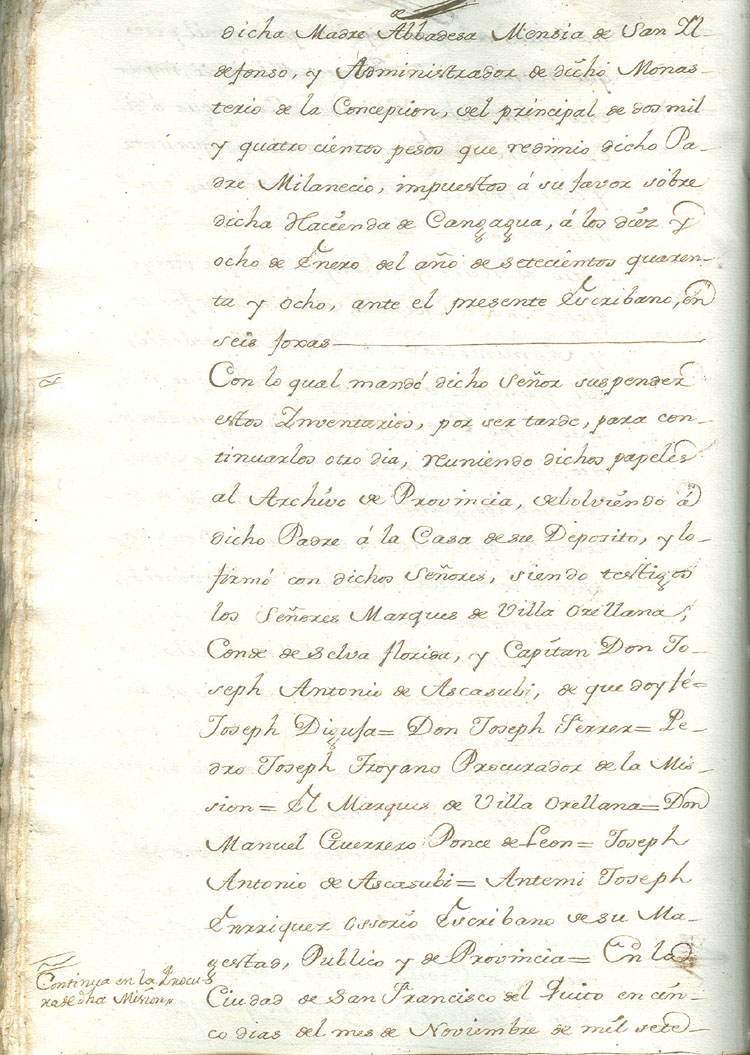 dicha Madre Abbadesa Mensia de San Yl-
defonso, y Administrador de dicho Monas-
terio de la Concepcion, del principal de dos mil
y quatrocientos pesos que redimio dicho Pa-
dre Milanecio, impuestos á su favor sobre
dicha Haciénda de Cangagua, á los diéz y
ocho de Enero del año de setecientos quaren-
ta y ocho, ante el presente Escribano, en
seis foxas
Con lo qual mandó dicho Señor suspender
estos Inventarios, por ser tarde, para con-
tinuarlos otro dia, reuniendo dichos papeles
al Archivo de Provincia, debolviéndo á
dicho Padre á la Casa de su Deposito, y lo
firmó con dichos Señores, siendo testigos
los Señores Marques de Villa Orellana,
Conde de Selva florida, y Capitan Don Jo-
seph Antonio de Ascasubi, de que doy fé=
Joseph Diguja= Don Joseph Ferrer= Pe-
dro Joseph Troyano Procurador de la Mis-
sion= El Marques de Villa Orellana= Don
Manuel Guerrero Ponce de Leon= Joseph
Antonio de Ascasubi= Antemi Joseph
Enrriquez Ossorio Escribano de su Ma-
gestad, Publico y de Provincia= En la
Continua en la Procu-
ra de dha Mision
Ciudad de San Francisco del Quito en cin-
co dias del mes de Noviembre de mil sete-